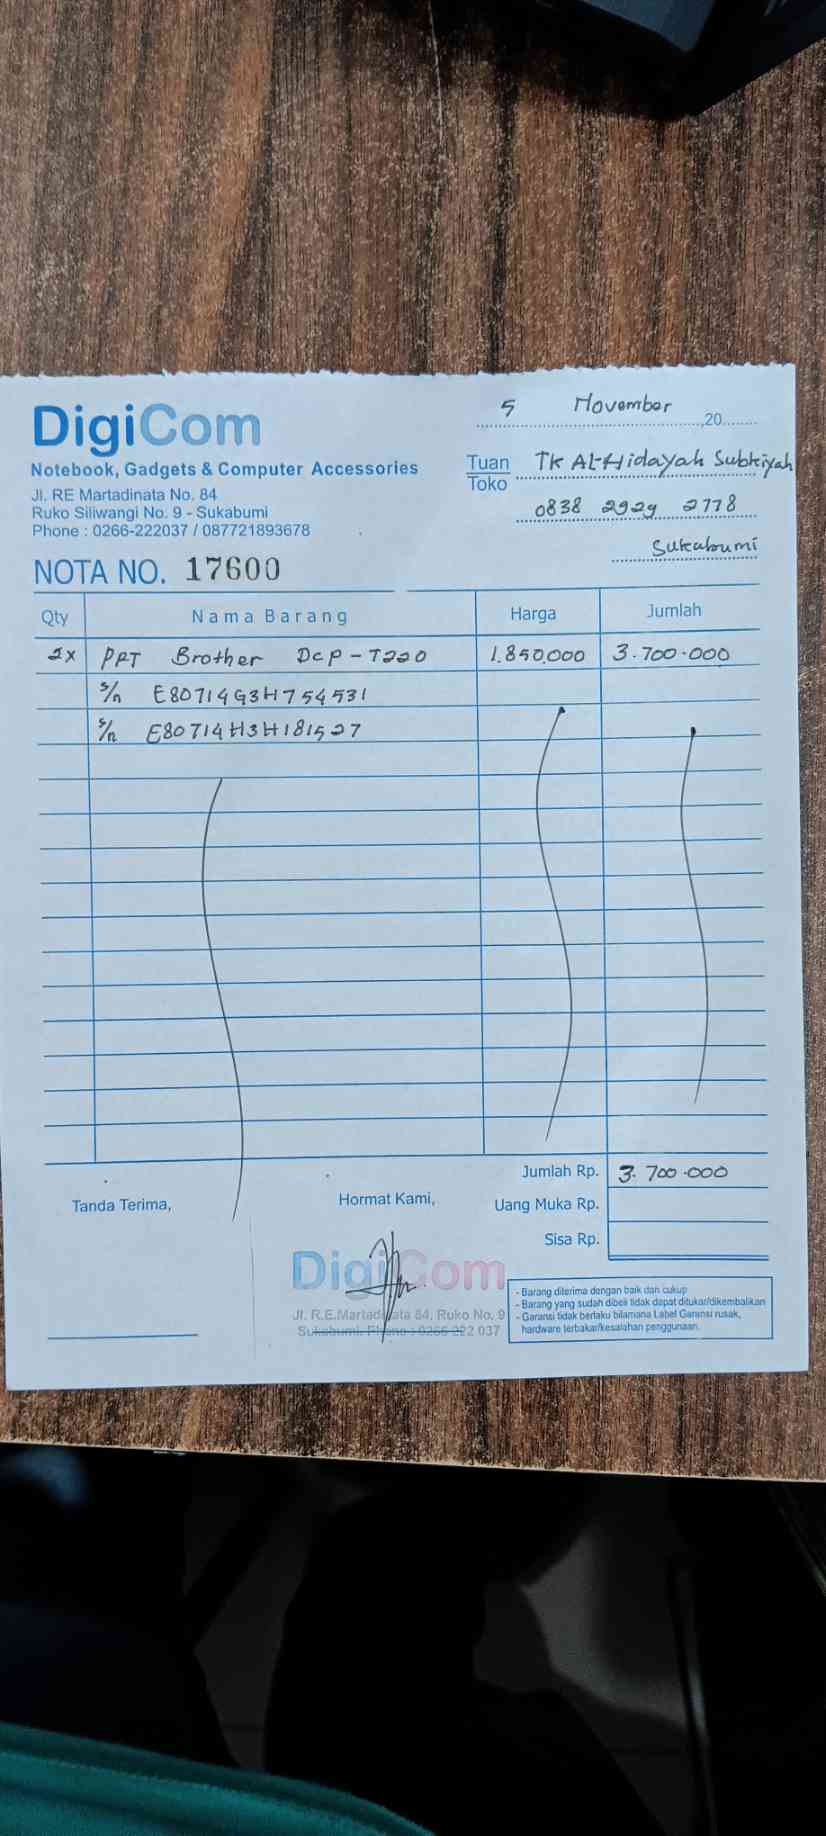 DigiCom
Notebook, Gadgets & Computer Accessories
Jl. RE Martadinata No. 84
Ruko Siliwangi No. 9 - Sukabumi
Phone : 0266-222037 / 087721893678
NOTA NO. 17600
5 November ,20
Tuan Toko TK Al-Hidayah Subkiyah
0838 2929 2778
Sukabumi
Qty Nama Barang Harga Jumlah
2x PRT Brother DCP-T220 1.850.000 3.700.000
s/n E80714G3H754531
s/n E80714H3H181527
Jumlah Rp. 3.700.000
Uang Muka Rp.
Sisa Rp.
Tanda Terima,
Hormat Kami,
DigiCom
Jl. R.E.Martadinata 84, Ruko No. 9
Sukabumi. Phone : 0266 222 037
- Barang diterima dengan baik dan cukup
- Barang yang sudah dibeli tidak dapat ditukar/dikembalikan
- Garansi tidak berlaku bilamana Label Garansi rusak,
hardware terbakar/kesalahan penggunaan.